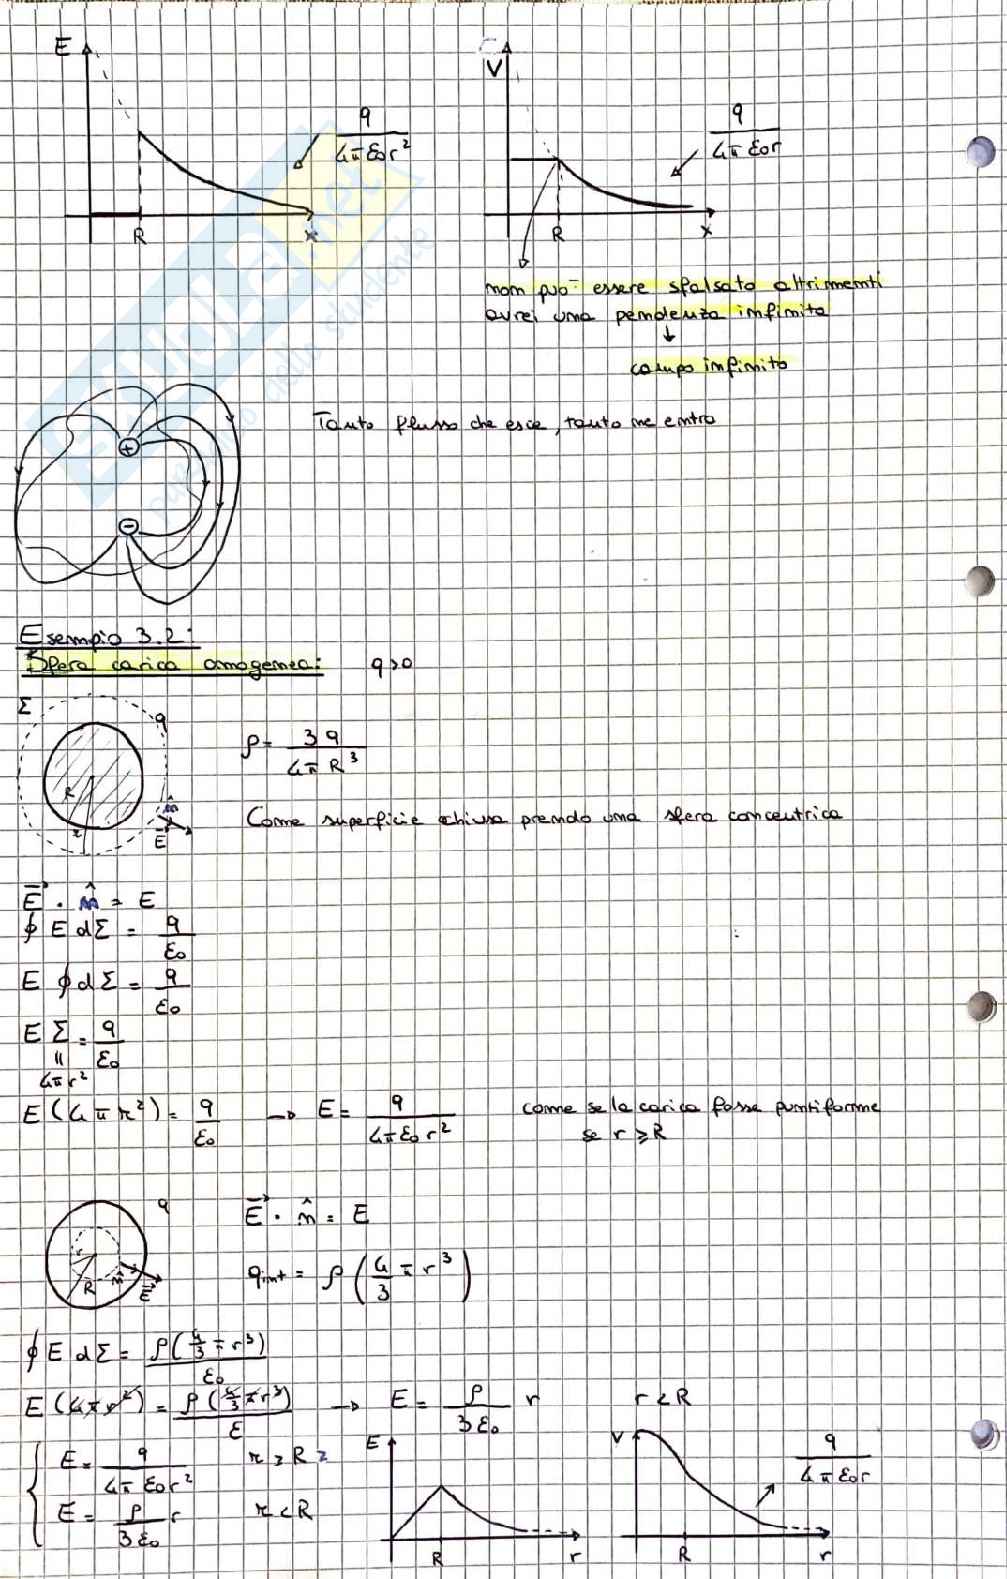 E
q
4π ε0 r²
R
x
V
q
4π ε0 r
R
x
non può essere sfalsato altrimenti
avrei una pendenza infinita
↓
campo infinito
Tanto flusso che esce, tanto ne entra
+
-
Esempio 3.2:
Sfera carica omogenea: q>0
Σ
q
R
r
n̂
E
ρ = 3q / 4π R³
Come superficie chiusa prendo una sfera concentrica
E⃗ · n̂ = E
∮ E dΣ = q / ε0
E ∮ dΣ = q / ε0
E Σ = q / ε0
"
4π r²
E (4π r²) = q / ε0 → E = q / 4π ε0 r² come se la carica fosse puntiforme
se r ≥ R
q
r
R
n̂
E⃗
E⃗ · n̂ = E
qint = ρ (4/3 π r³)
∮ E dΣ = ρ (4/3 π r³) / ε0
E (4π r²) = ρ (4/3 π r³) / ε → E = ρ / 3 ε0 r r < R
E = q / 4π ε0 r² r ≥ R
E = ρ / 3 ε0 r r < R
E
R
r
V
q
4π ε0 r
R
r